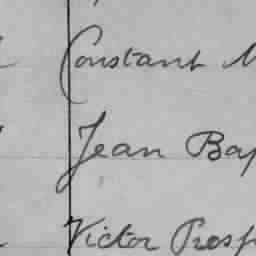 Constant M
Jean Bap
Victor Prosp